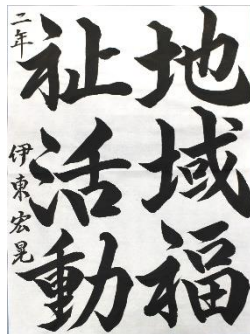 地域福
祉活動
二年 伊東宏晃